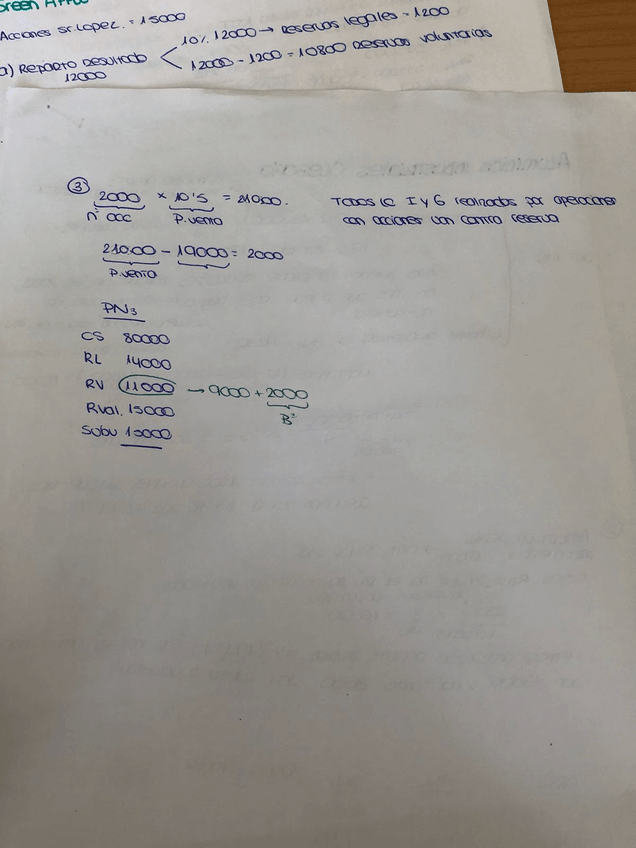 Green Apple
Acciones Sr. Lopez. = 15000
a) Reparto resultado
12000
10% 12000 → Reservas legales = 1200
12000 - 1200 = 10800 Reservas voluntarias
③ 2000 × 10'5 = 21000.
nº acc P. venta
Todos los I y G realizados por operaciones
con acciones van contra reserva
21000 - 19000 = 2000
P. venta
PN3
CS 80000
RL 14000
RV 11000 → 9000 + 2000
Bº
Rval. 15000
Subv 10000